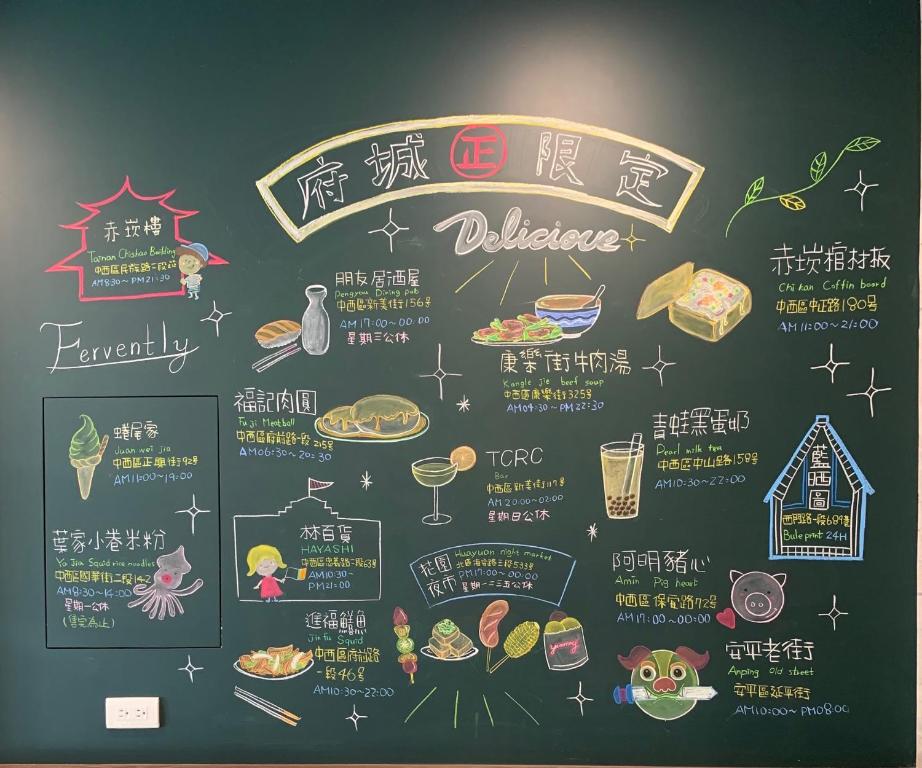 府城正限定
Delicious
赤崁樓
Tainan Chiakan Building
中西區民族路二段212
AM8:30~PM21:30
Fervently
朋友居酒屋
Pengyou Dining pub
中西區新美街156号
AM17:00~00:00
星期三公休
康樂街牛肉湯
Kangle Jie beef soup
中西區康樂街325号
AM04:30~PM22:30
赤崁棺材板
Chi kan Coffin board
中西區中正路180号
AM11:00~21:00
蜷尾家
Juan wei jia
中西區正興街92号
AM11:00~19:00
葉家小卷米粉
Ye Jia Squid rice noodles
中西區國華街二段142
AM8:30~14:00
星期一公休
(售完為止)
福記肉圓
Fu ji Meatball
中西區府前路一段215号
AM06:30~20:30
TCRC
Bar
中西區新美街117号
AM20:00~02:00
星期日公休
青蛙黑蛋奶
Pearl milk tea
中西區中山路158号
AM10:30~22:00
藍晒圖
西門路一段689巷
Buleprint 24H
林百貨
HAYASHI
中西區忠義路二段63号
AM10:30~
PM21:00
花園夜市
Huayuan night market
北區海安路三段533号
PM17:00~00:00
星期一二三五公休
yummy
進福鱔魚
Jin fu Squid
中西區府前路
一段46号
AM10:30~22:00
阿明豬心
Amin Pig heart
中西區保安路72号
AM17:00~00:00
安平老街
Anping old street
安平區延平街
AM10:00~PM08:00